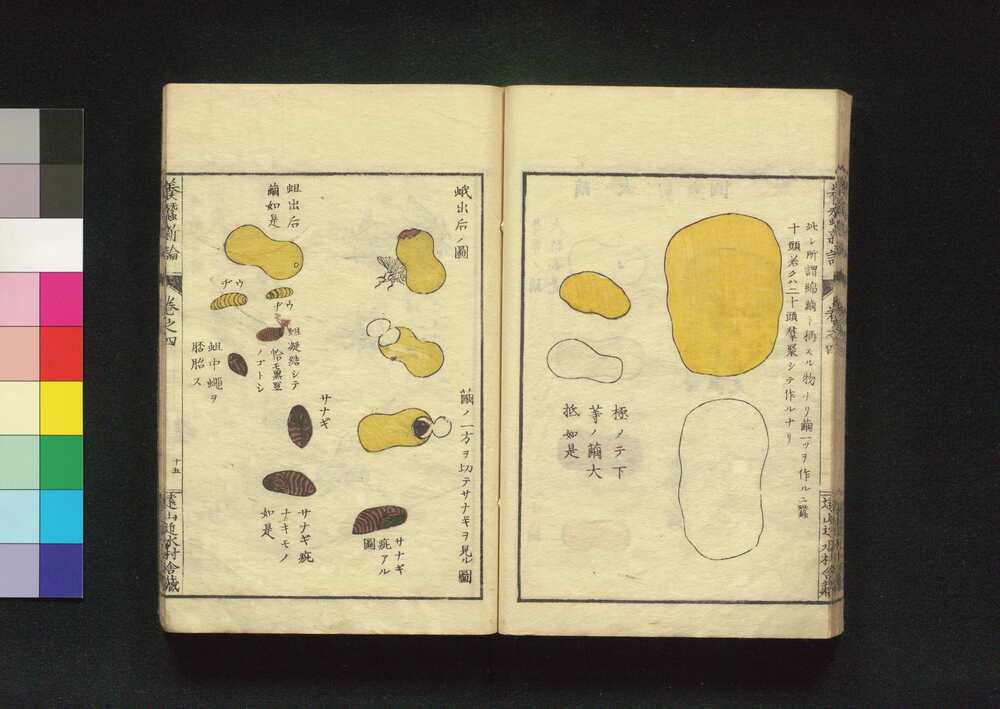 此レ所謂綿繭ト稱スル物ナリ繭一ツヲ作ルニ蠶
十頭若クハ二十頭羣聚シテ作ルナリ
極メテ下
等ノ繭大
抵如是
蛾出后ノ圖
繭ノ一方ヲ切テサナギヲ見ル圖
蛆出后
繭如是
ウヂ
ウヂ
蛆凝結シテ
恰モ黒豆
ノゴトシ
蛆中蠅ヲ
胚胎ス
サナギ
サナギ疵
ナキモノ
如是
サナギ
疵アル
圖
養蠶新論
卷之四
十五
遠山近水村舎藏